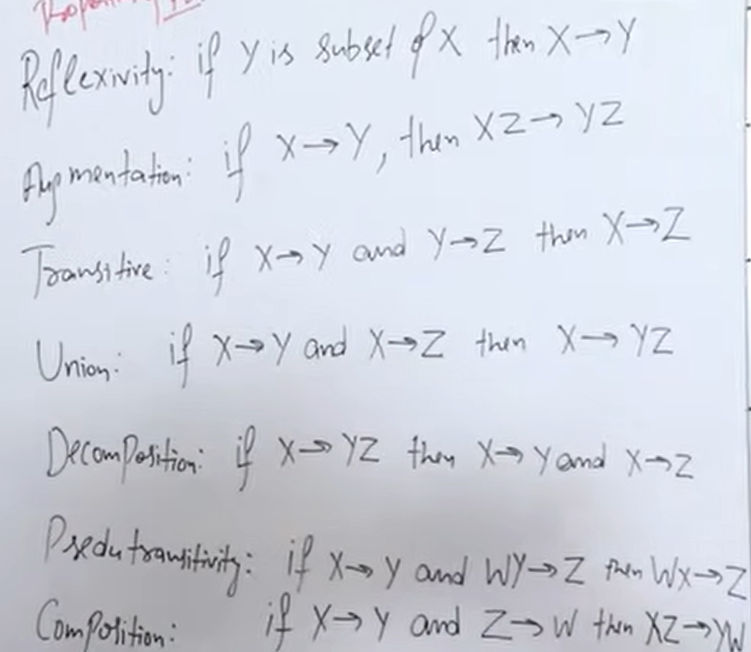 Reflexivity: if Y is subset of X then X→Y
Augmentation: if X→Y, then XZ→YZ
Transitive: if X→Y and Y→Z then X→Z
Union: if X→Y and X→Z then X→YZ
Decomposition: if X→YZ then X→Y and X→Z
Psedutransitivity: if X→Y and WY→Z then WX→Z
Composition: if X→Y and Z→W then XZ→YW